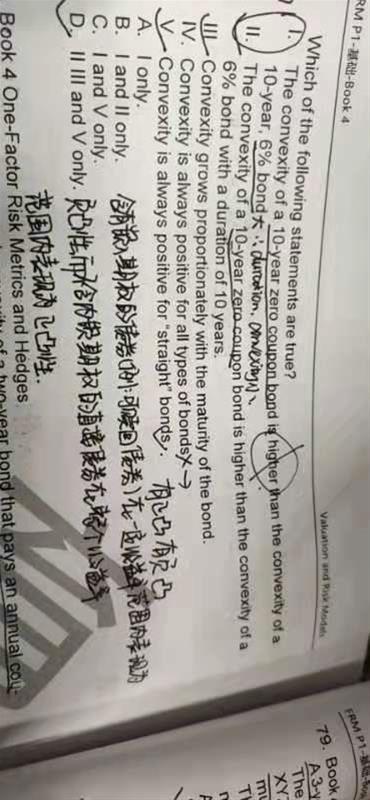 FRM P1-基础-Book 4
Valuation and Risk Models
Which of the following statements are true?
I. The convexity of a 10-year zero coupon bond is higher than the convexity of a
10-year, 6% bond 大 ∴ duration, convexity
II. The convexity of a 10-year zero coupon bond is higher than the convexity of a
6% bond with a duration of 10 years.
III. Convexity grows proportionately with the maturity of the bond.
IV. Convexity is always positive for all types of bonds. ×→
V. Convexity is always positive for "straight" bonds. 有正凸有负凸
A. I only.
B. I and II only.
C. I and V only.
D. II III and V only.
含有期权的债券(例:可赎回债券)在一定收益率范围内表现为
负凸性,而不含内嵌期权的普通债券在整个收益率
范围内表现为正凸性.
Book 4 One-Factor Risk Metrics and Hedges
two-year bond that pays an annual cou-
FRM P1-基础-Boo
79. Book
A 3-y
The
XY